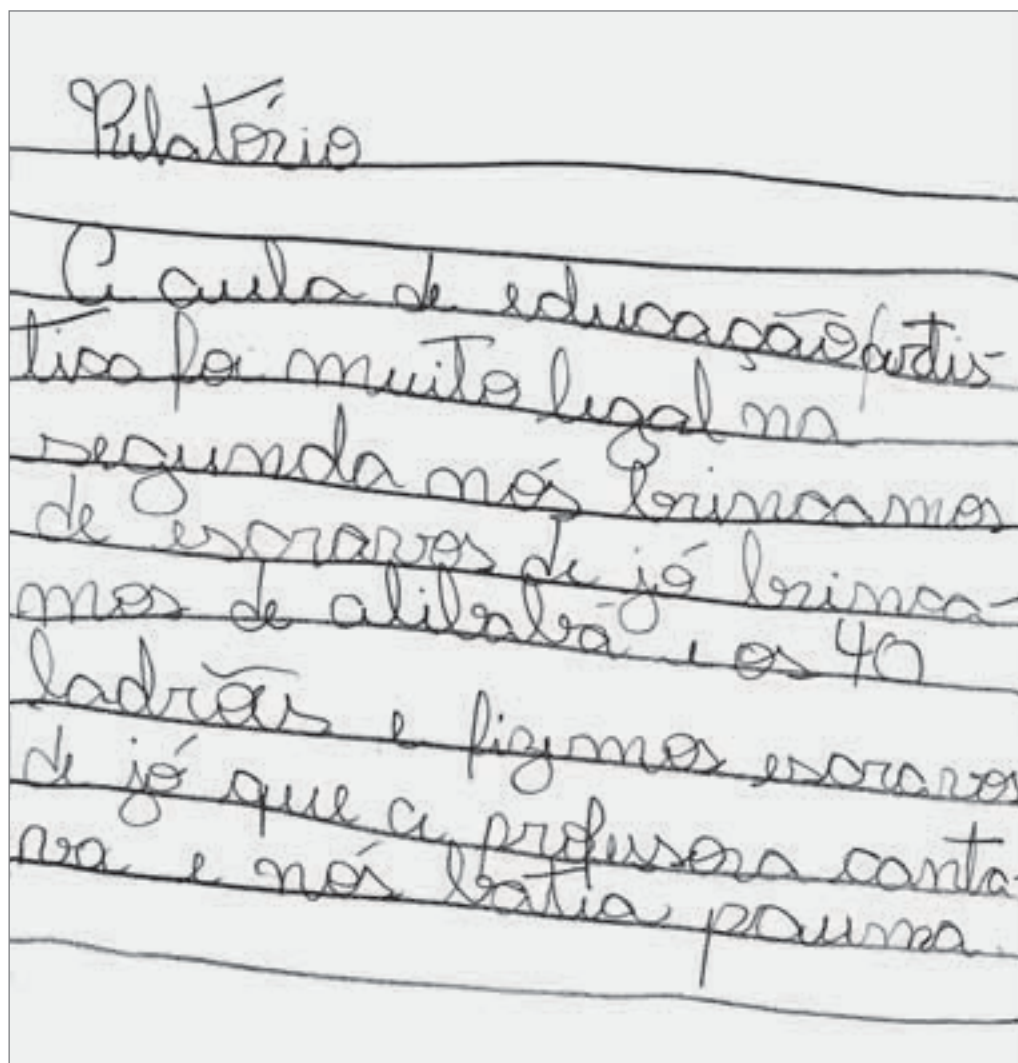 Relatório
A aula de educação artis-
tica foi muito legal na
segunda nós brincamos
de escravos de jó brinca-
mos de alibabá e os 40
ladrãs e fizemos escravos
de jó que a professora canta-
va e nós batia pauma.